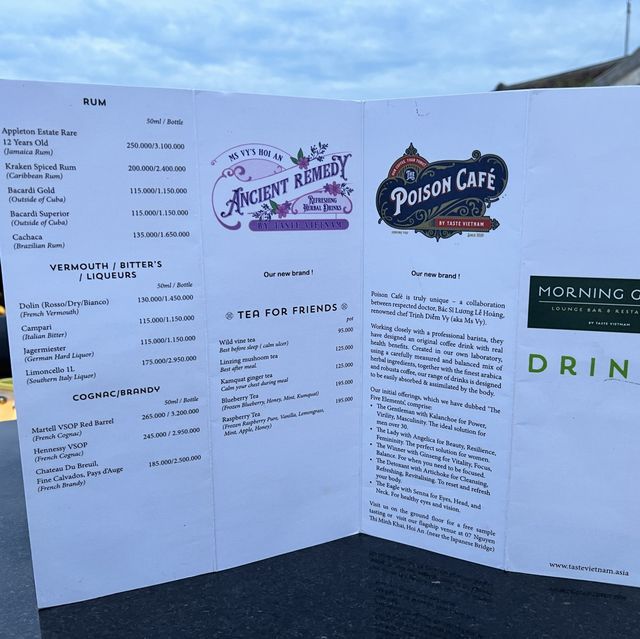 RUM
50ml / Bottle
Appleton Estate Rare
12 Years Old 250.000/3.100.000
(Jamaica Rum)
Kraken Spiced Rum 200.000/2.400.000
(Caribbean Rum)
Bacardi Gold 115.000/1.150.000
(Outside of Cuba)
Bacardi Superior 115.000/1.150.000
(Outside of Cuba)
Cachaca 135.000/1.650.000
(Brazilian Rum)
VERMOUTH / BITTER'S
/ LIQUEURS
50ml / Bottle
Dolin (Rosso/Dry/Bianco) 130.000/1.450.000
(French Vermouth)
Campari 115.000/1.150.000
(Italian Bitter)
Jagermiester 115.000/1.150.000
(German Hard Liquor)
Limoncello 1L 175.000/2.950.000
(Southern Italy Liquor)
COGNAC/BRANDY
50ml / Bottle
Martell VSOP Red Barrel 265.000 / 3.200.000
(French Cognac)
Hennessy VSOP 245.000 / 2.950.000
(French Cognac)
Chateau Du Breuil,
Fine Calvados, Pays d'Auge 185.000/2.500.000
(French Brandy)
MS VY'S HOI AN
ANCIENT REMEDY
REFRESHING
HERBAL DRINKS
BY TASTE VIETNAM
Our new brand !
TEA FOR FRIENDS
pot
Wild vine tea 95.000
Best before sleep ( calm slicer)
Linzing mushroom tea 125.000
Best after meal.
Kumquat ginger tea 125.000
Calm your chest during meal
Blueberry Tea 195.000
(Frozen Blueberry, Honey, Mint, Kumquat)
Raspberry Tea 195.000
(Frozen Raspberry Pure, Vanilla, Lemongrass,
Mint, Apple, Honey)
THE
POISON CAFÉ
BY TASTE VIETNAM
Our new brand !
Poison Café is truly unique – a collaboration
between respected doctor, Bác Sĩ Lương Lễ Hoàng,
renowned chef Trinh Diễm Vy (aka Ms Vy).
Working closely with a professional barista, they
have designed an original coffee drink with real
health benefits. Created in our own laboratory,
using a carefully measured and balanced mix of
herbal ingredients, together with the finest arabica
and robusta coffee, our range of drinks is designed
to be easily absorbed & assimilated by the body.
Our initial offerings, which we have dubbed "The
Five Elements', comprise:
• The Gentleman with Kalanchoe for Power,
Virility, Masculinity. The ideal solution for
men over 30.
• The Lady with Angelica for Beauty, Resilience,
Femininity. The perfect solution for women.
• The Winner with Ginseng for Vitality, Focus,
Balance. For when you need to be focused.
• The Detoxant with Artichoke for Cleansing,
Refreshing, Revitalising. To reset and refresh
your body.
• The Eagle with Senna for Eyes, Head, and
Neck. For healthy eyes and vision.
Visit us on the ground floor for a free sample
tasting or visit our flagship venue at 07 Nguyen
Thi Minh Khai, Hoi An. (near the Japanese Bridge)
MORNING G
LOUNGE BAR & RESTA
BY TASTE VIETNAM
DRIN
www.tastevietnam.asia